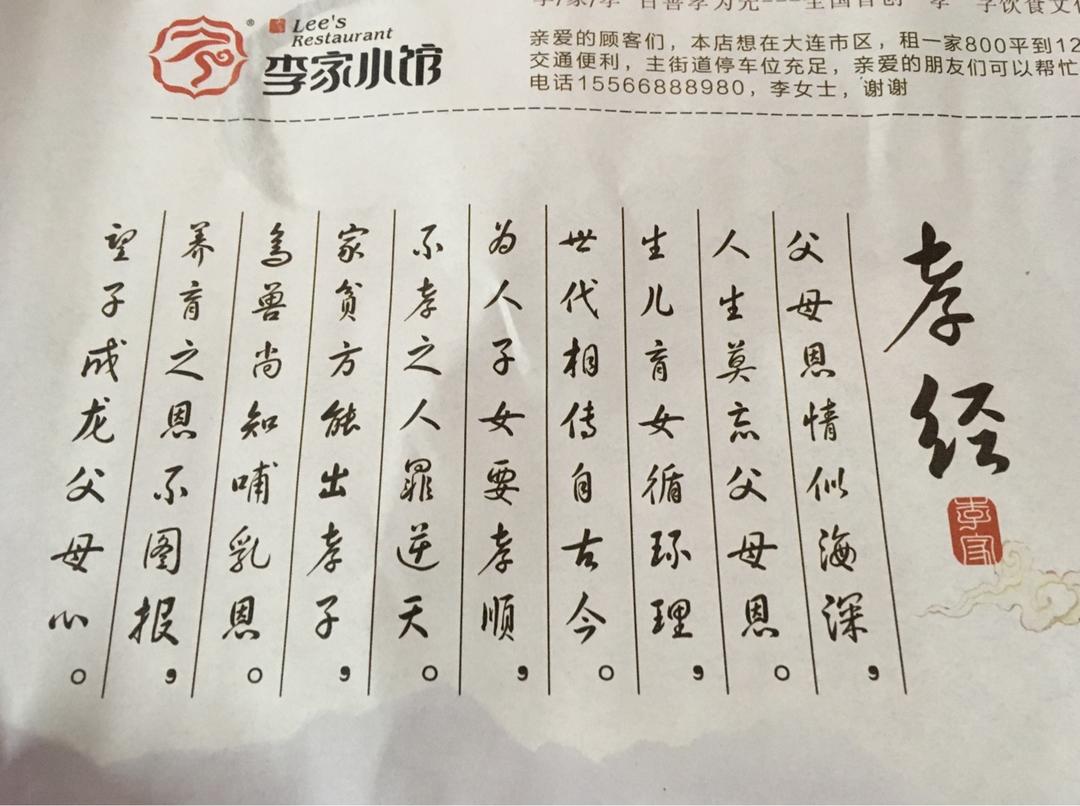 Lee's
Restaurant
李家小馆
李/家/孝 百善孝为先---全国首创“孝”字饮食文化
亲爱的顾客们，本店想在大连市区，租一家800平到12
交通便利，主街道停车位充足，亲爱的朋友们可以帮忙
电话15566888980，李女士，谢谢
孝经
李家
父母恩情似海深，
人生莫忘父母恩。
生儿育女循环理，
世代相传自古今。
为人子女要孝顺，
不孝之人罪逆天。
家贫方能出孝子，
鸟兽尚知哺乳恩。
养育之恩不图报，
望子成龙父母心。